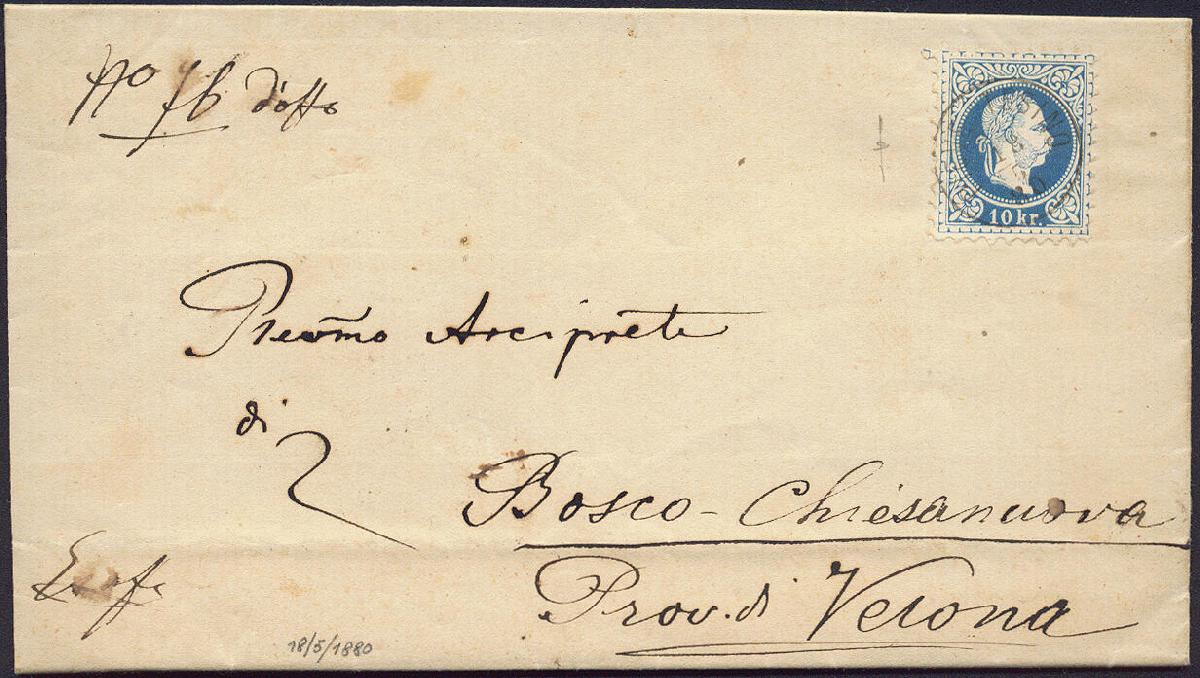 No 76 d'uffo
10 kr.
Revm̃o Arciprete
di
Bosco - Chiesanuova
Prov. di Verona
18/5/1880